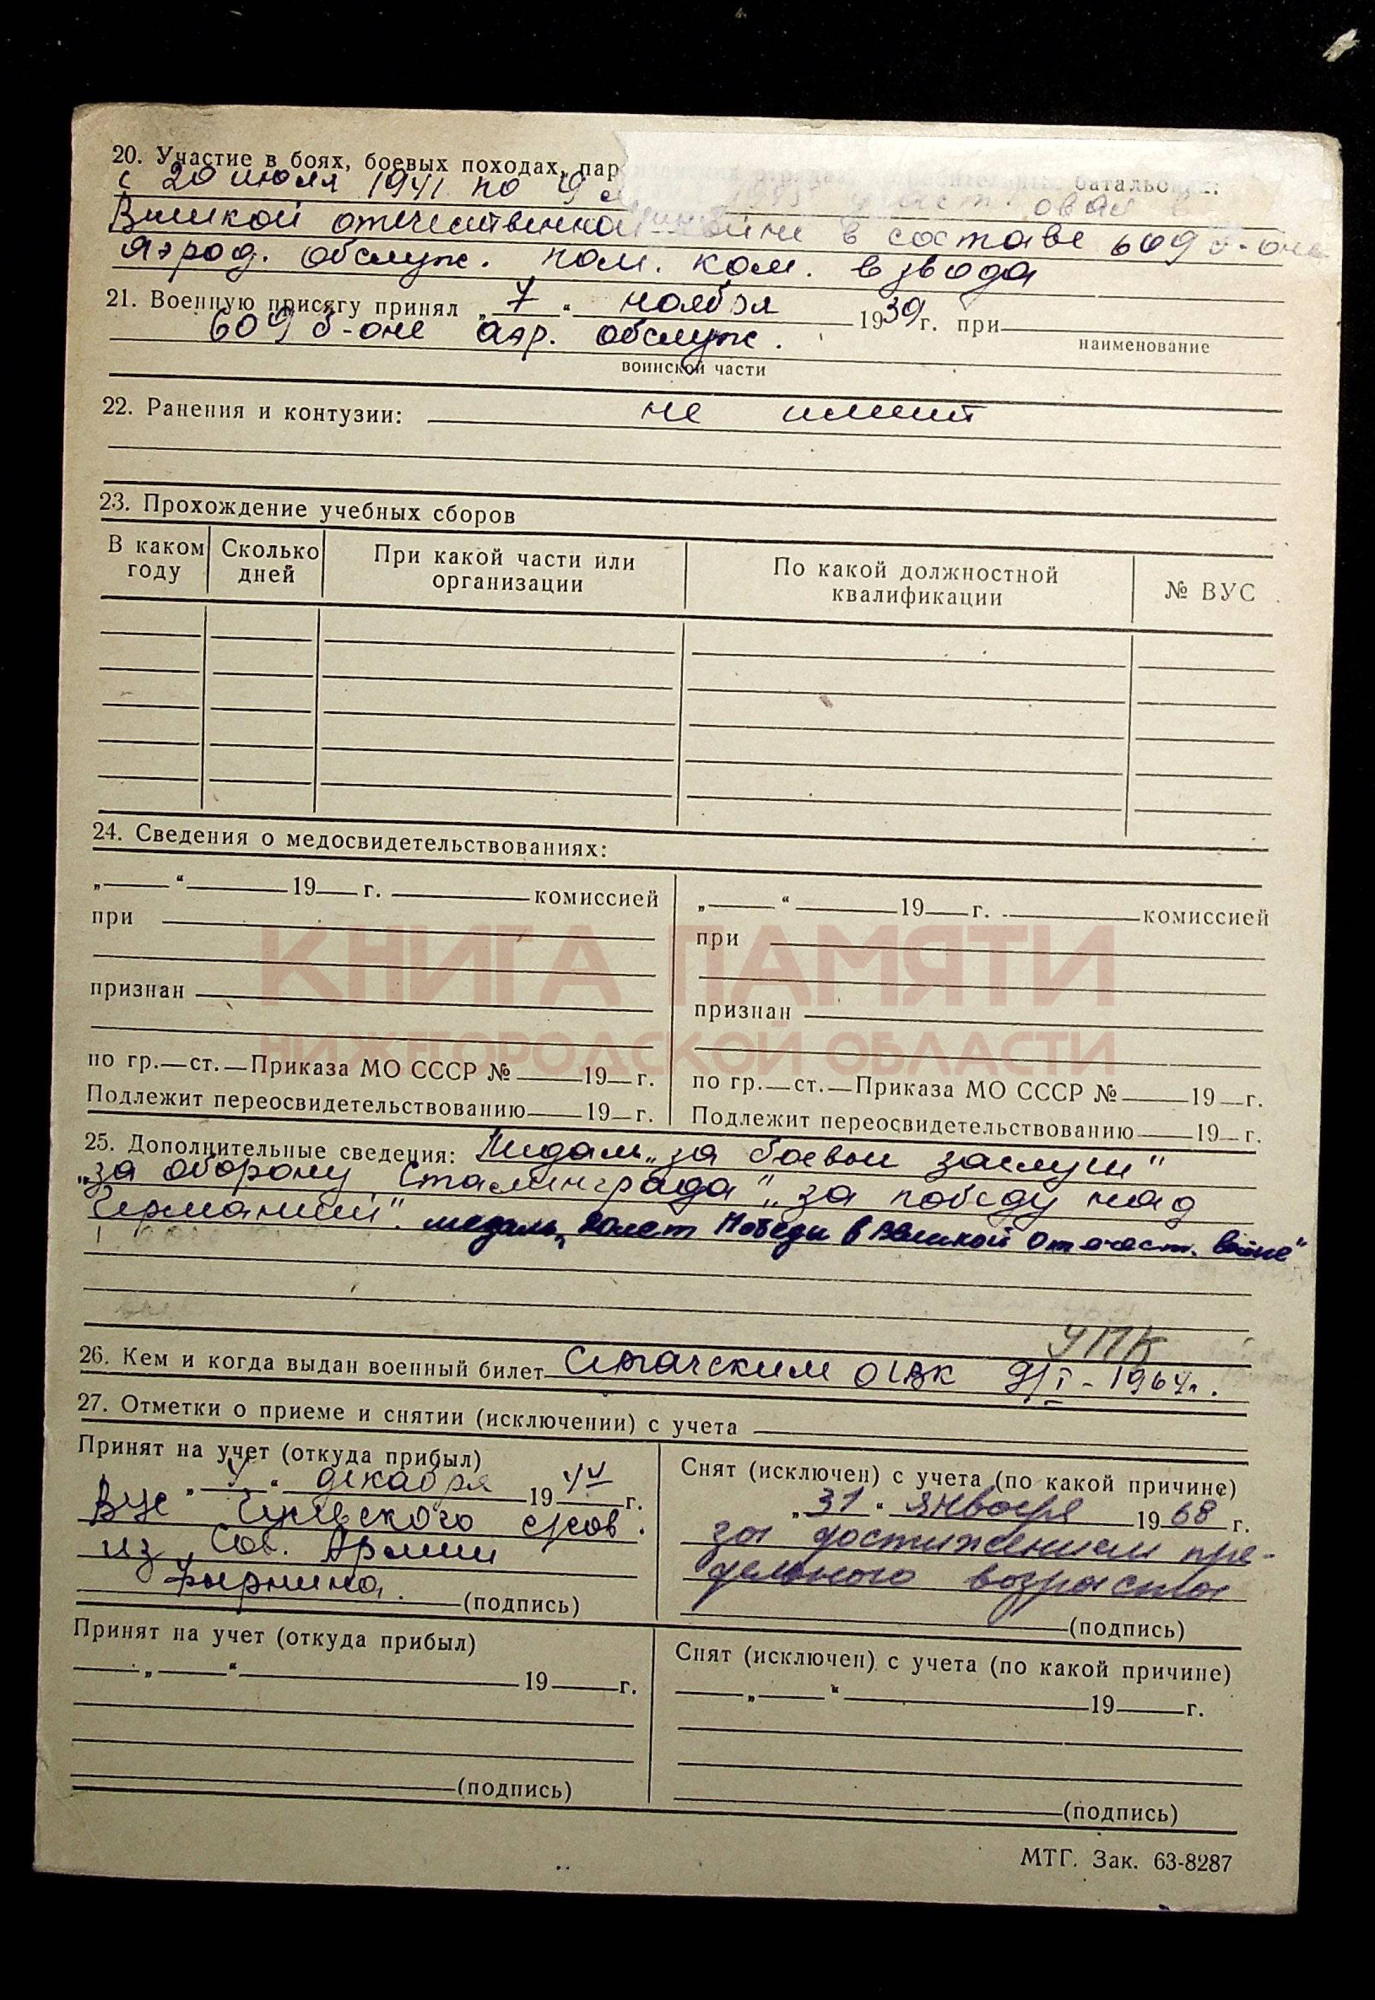 20. Участие в боях, боевых походах, пар батальонах:
с 20 июля 1941 по 9 1945 участвовал в
Великой отечественной войне в составе 609 б-она
Аэрод. обслуж. пом. ком. взвода
21. Военную присягу принял „ 7 “ ноября 1939 г. при
наименование
609 б-оне аэр. обслуж.
воинской части
22. Ранения и контузии: не имеет
23. Прохождение учебных сборов
В каком году Сколько дней При какой части или организации По какой должностной квалификации № ВУС
24. Сведения о медосвидетельствованиях:
„ “ 19 г. комиссией
при
признан
по гр. ст. Приказа МО СССР № 19 г.
Подлежит переосвидетельствованию 19 г.
„ “ 19 г. комиссией
при
признан
по гр. ст. Приказа МО СССР № 19 г.
Подлежит переосвидетельствованию 19 г.
КНИГА ПАМЯТИ
НИЖЕГОРОДСКОЙ ОБЛАСТИ
25. Дополнительные сведения: Медаль „за боевы заслуги“
„за оборону Сталинграда“ „за победу над
Германией“. медаль „20 лет Победы в Великой Отечест. войне“
УПК
26. Кем и когда выдан военный билет ОВК 9/I - 1964 г.
27. Отметки о приеме и снятии (исключении) с учета
Принят на учет (откуда прибыл)
„ 4 “ декабря 19 г.
ВУС
из Сов. Армии
(подпись)
Снят (исключен) с учета (по какой причине)
„ 31 “ января 1968 г.
за достижением пре-
дельного возраста
(подпись)
Принят на учет (откуда прибыл)
„ “ 19 г.
(подпись)
Снят (исключен) с учета (по какой причине)
„ “ 19 г.
(подпись)
МТГ. Зак. 63-8287